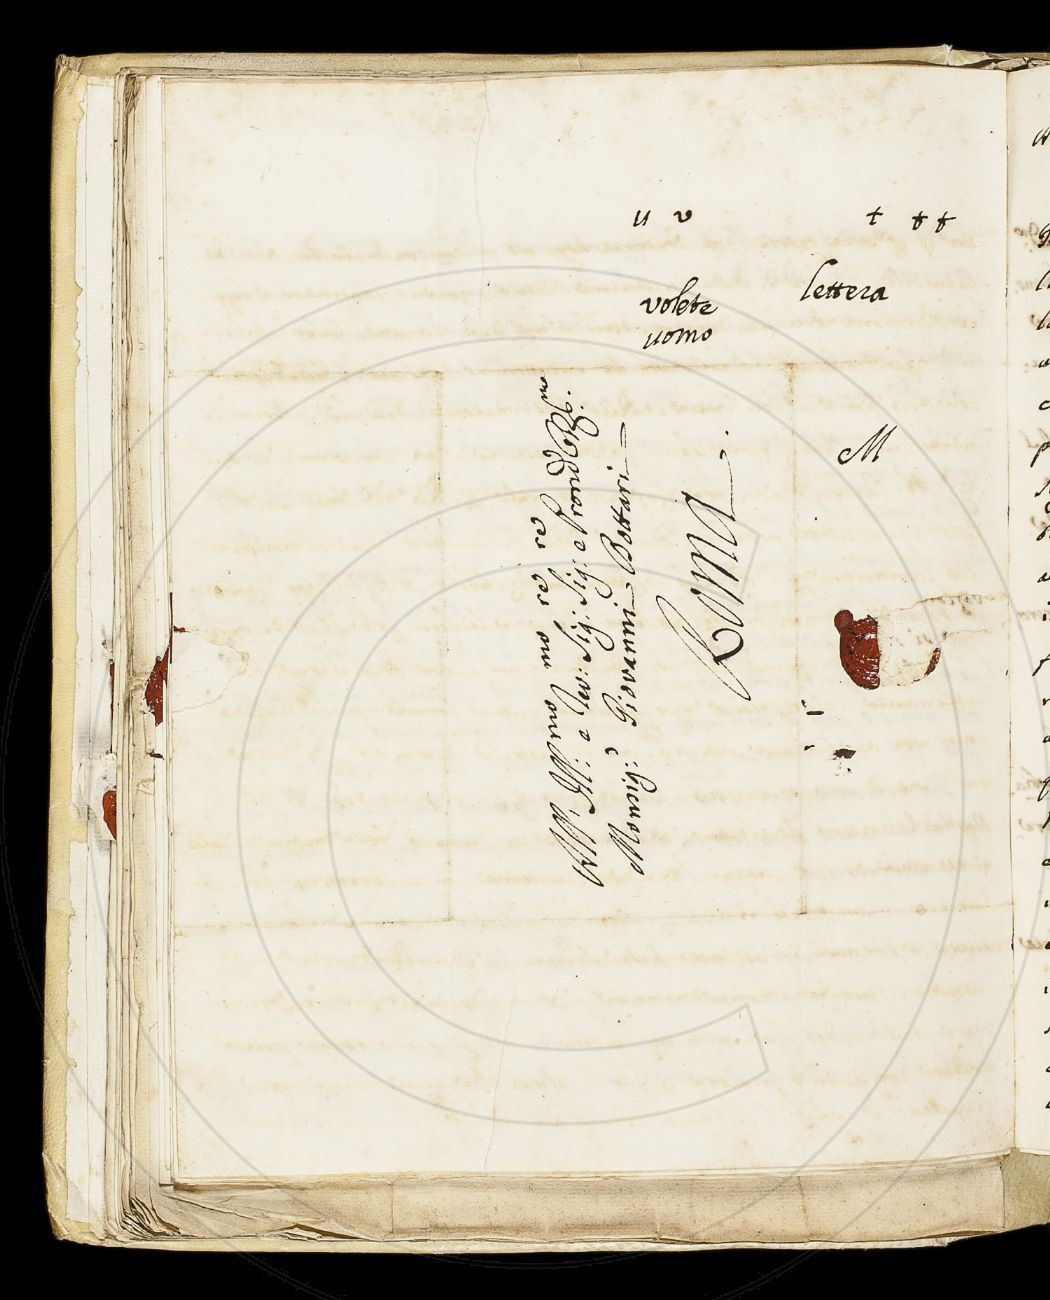 u v t tt tt
volete lettera
uomo
M
All' Ill: mo e Rev: mo Sig: Sig: e Pron: Col: mo
Monsig: e Giovanni Bottari
Roma